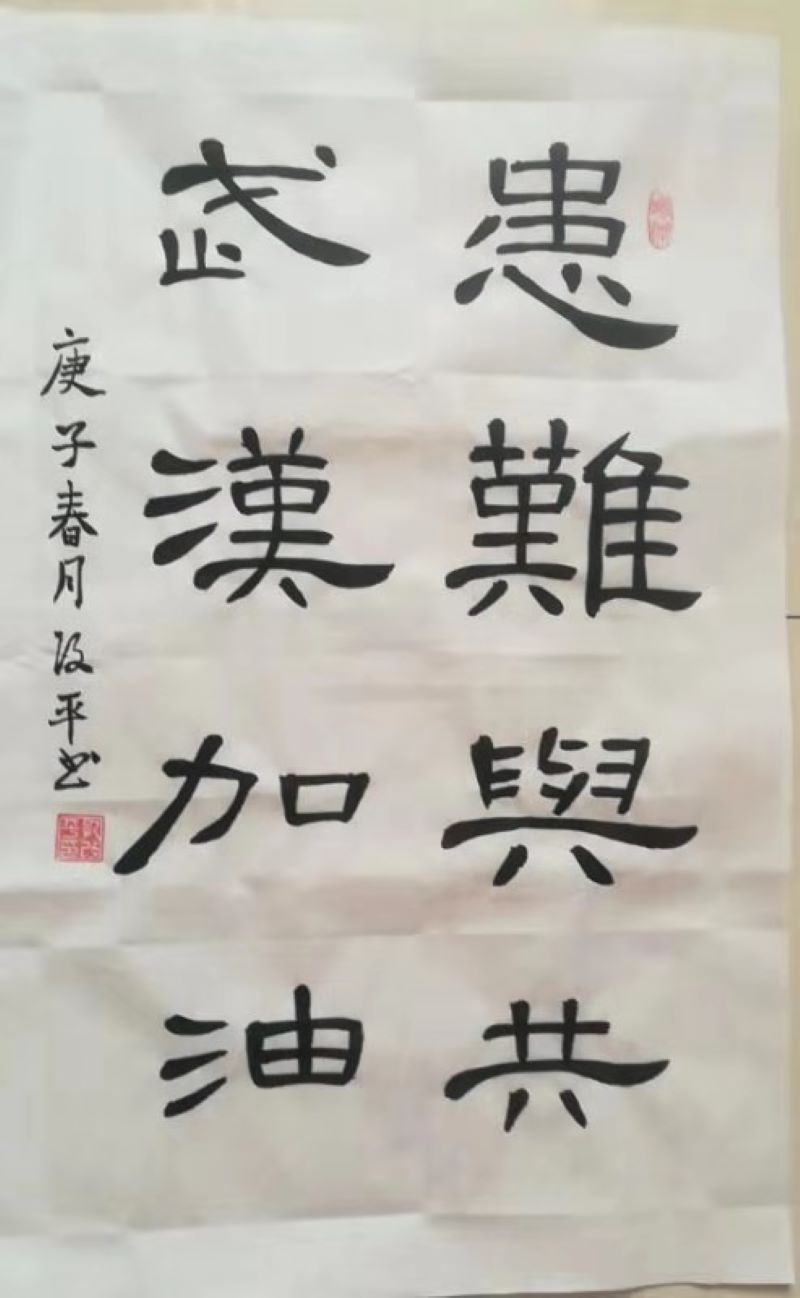 患難與共
武漢加油
庚子春月改平书